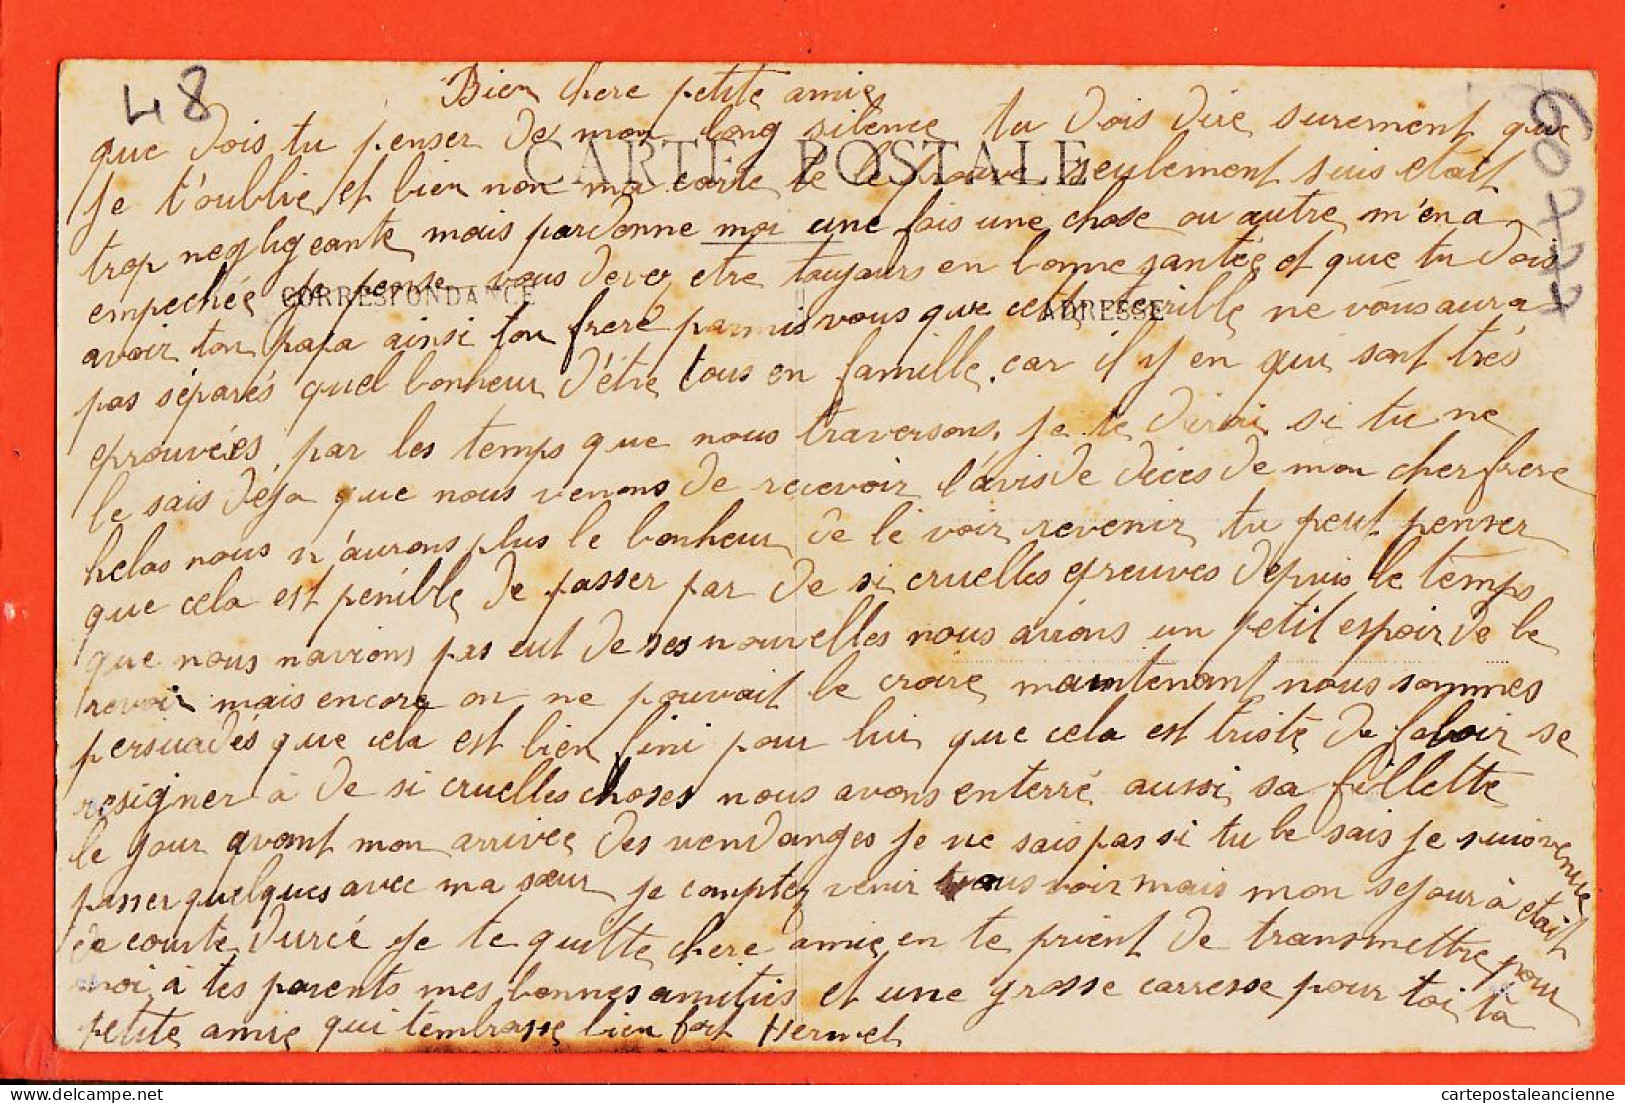 48
60777
Bien chere petite amie
que dois tu penser de mon long silence tu dois dire surement que
CARTE POSTALE
je t'oublie et bien non ma carte te le prouve seulement suis était
trop negligeante mais pardonne moi une fois une chose ou autre m'en a
empechée je pense vous devez etre toujours en bonne santée et que tu dois
CORRESPONDANCE
ADRESSE
avoir ton papa ainsi ton frere parmis vous que cette terrible ne vous aura
pas séparés quel bonheur d'être tous en famille. car il y en qui sont très
eprouvées par les temps que nous traversons. je te dirai si tu ne
le sais deja que nous venons de recevoir l'avis de déces de mon cher frere
helas nous n'aurons plus le bonheur de le voir revenir tu peut penser
que cela est pénible de passer par de si cruelles epreuves depuis le temps
que nous navions pas eut de ses nouvelles nous avions un petit espoir de le
revoir mais encore on ne pouvait le croire maintenant nous sommes
persuadés que cela est bien fini pour lui que cela est triste de faloir se
resigner à de si cruelles choses nous avons enterré aussi sa fillette
le jour avant mon arrivée des vendanges je ne sais pas si tu le sais je suis venue
passer quelques avec ma sœur je comptez venir vous voir mais mon sejour à etait
de courte durée je te quitte chere amie en te prient de transmettre pour
moi à tes parents mes bonnes amities et une grosse carresse pour toi ta
petite amie qui t'embrasse bien fort Hermet
cartepostaleancienne
www.delcampe.net